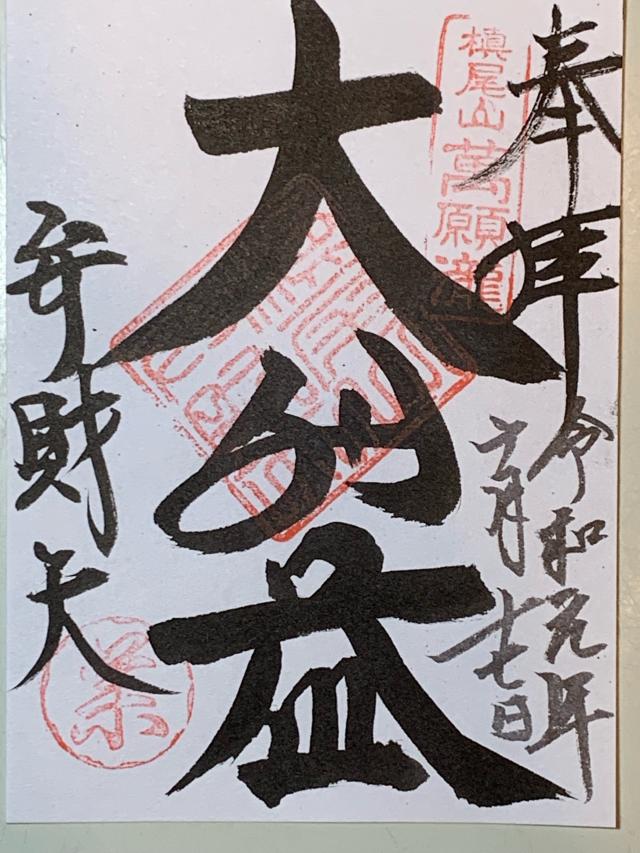 奉拝
令和元年
六月十七日
槇尾山萬願瀧
大利益
弁財天